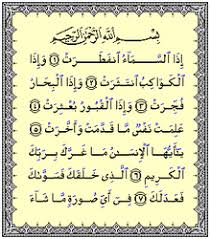 بِسْمِ اللَّهِ الرَّحْمَٰنِ الرَّحِيمِ
إِذَا السَّمَاءُ انفَطَرَتْ ١ وَإِذَا
الْكَوَاكِبُ انتَثَرَتْ ٢ وَإِذَا الْبِحَارُ
فُجِّرَتْ ٣ وَإِذَا الْقُبُورُ بُعْثِرَتْ ٤
عَلِمَتْ نَفْسٌ مَّا قَدَّمَتْ وَأَخَّرَتْ ٥
يَا أَيُّهَا الْإِنسَانُ مَا غَرَّكَ بِرَبِّكَ
الْكَرِيمِ ٦ الَّذِي خَلَقَكَ فَسَوَّاكَ
فَعَدَلَكَ ٧ فِي أَيِّ صُورَةٍ مَّا شَاءَ